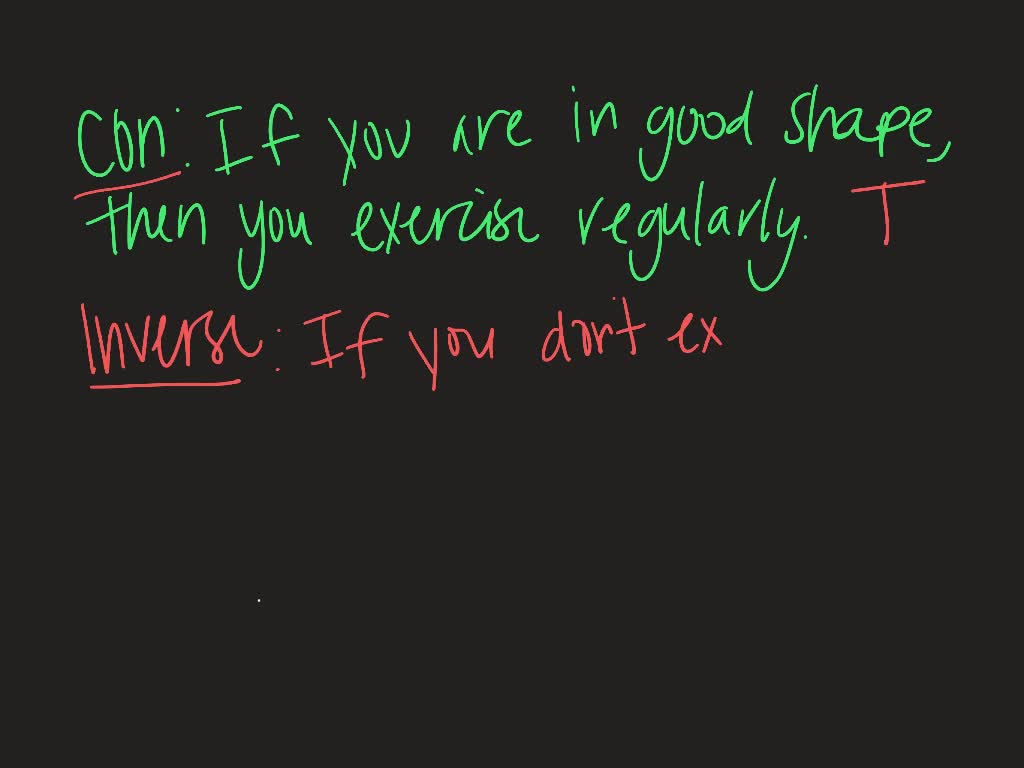 Con: If you are in good shape,
then you exercise regularly. T
Inverse: If you don't ex